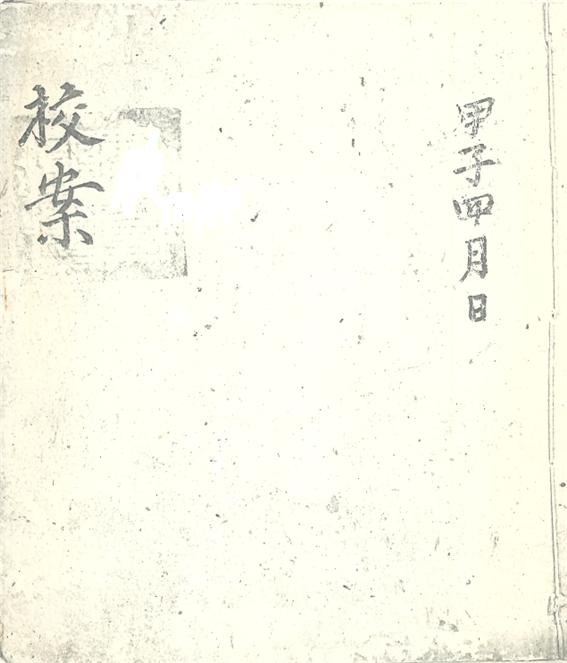 甲子四月日
校案